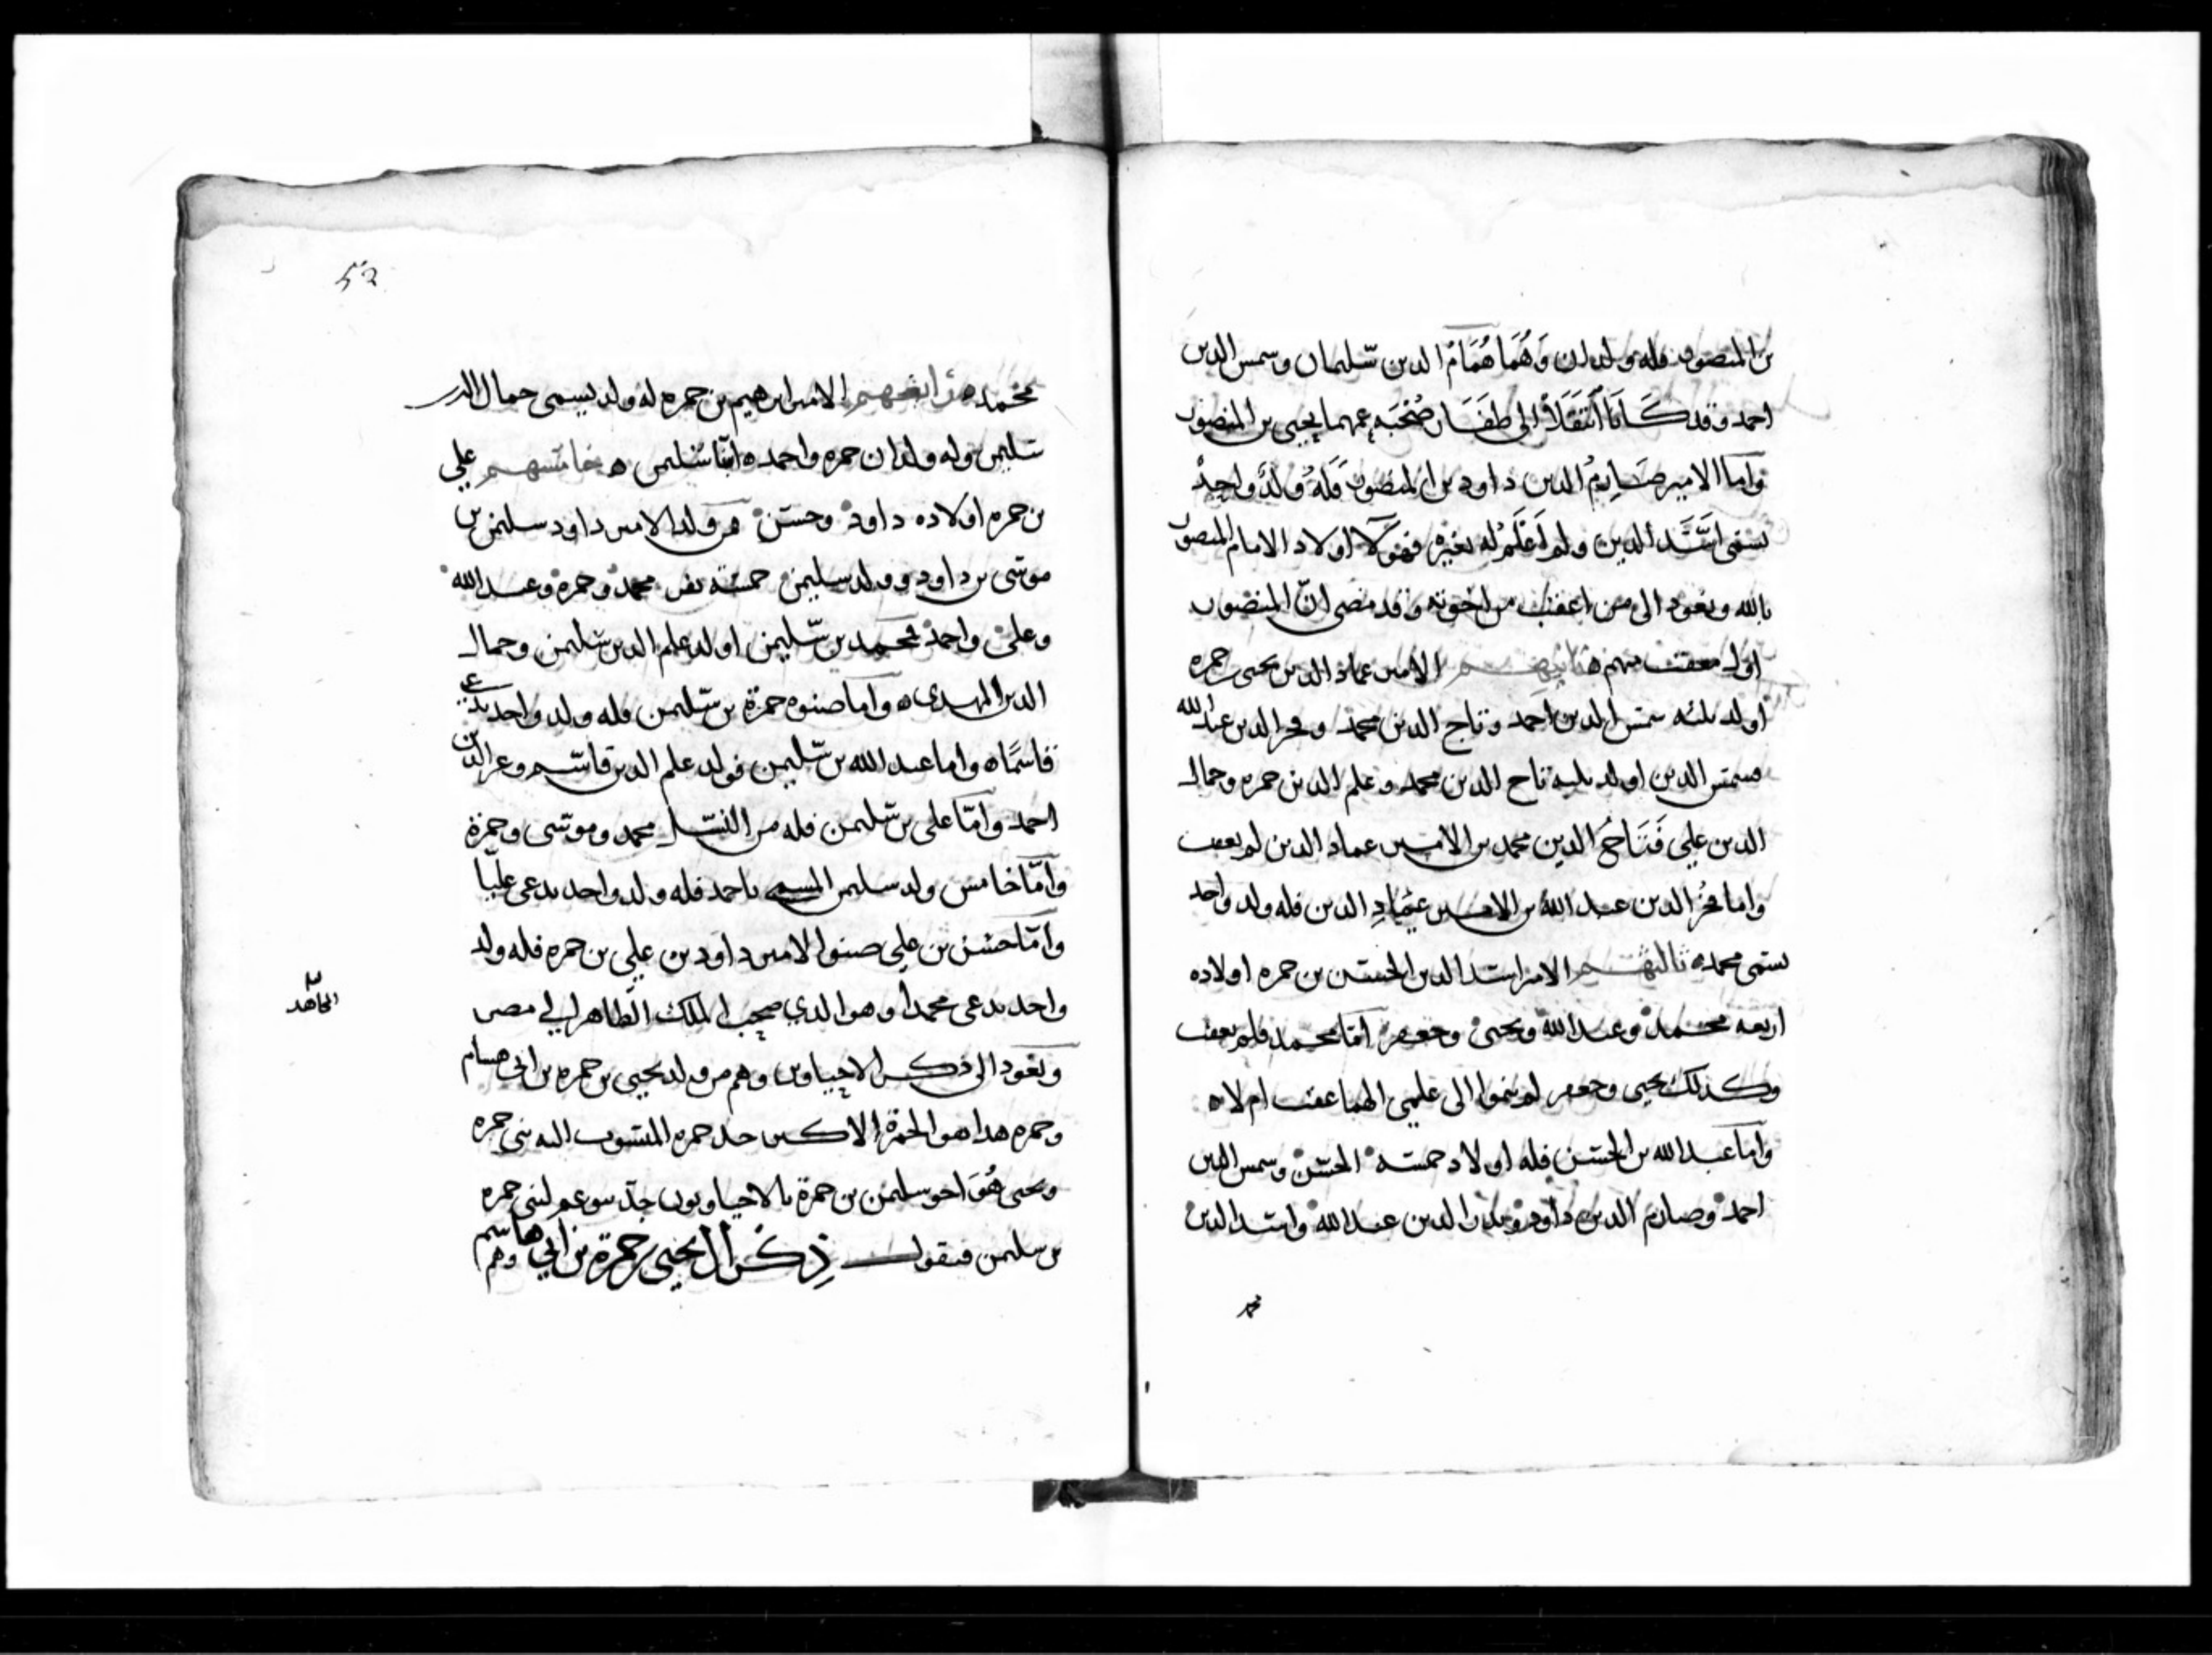 بن المنصور فله ولدان وَهُمَا هُمَامُ الدين سليمان وشمس الدين
احمد وقد كَانَا اَنتَقَلَا الى ظفَار صُحْبَة عمهما يحيى بن المنصور
وَامَا الامير صَارِمُ الدين داود بن المنصور فَلَهُ وَلدٌ واحِدٌ
يسمى اَسَدَ الدين ولم اَعْلَمْ له بغيره فهؤلآ اولاد الامام المنصور
بالله ونعود الى من اعقب من اخوته وقد مضى انّ المنصور
اول معقب منهم ه ثانيهم الامير عماد الدين يحيى بن حمزه
اولد ثلثه شمس الدين احمد وتاج الدين محمد وفخر الدين عبد الله
فشمس الدين اولد ثلثه تاج الدين محمد وعلم الدين حمزه وجمال
الدين علي فَتَاجُ الدين محمد بن الامير عماد الدين لم يعقب
واما فخر الدين عبد الله بن الامير عِمَادِ الدين فله ولد واحد
يسمى محمد ه ثالثهم الامير اسد الدين الحسن بن حمزه اولاده
اربعه محمد وعبد الله ويحيى وجعفر امّا محمد فلم يعقب
وكذلك يحيى وجعفر لم ينموا الى علمي الهما عقب ام لا ه
وَامَا عبد الله بن الحسن فله اولاد خمسه الحسن وشمس الدين
احمد وصارم الدين داود وبدر الدين عبد الله واسد الدين
محمد
٥٢
محمد ه رابعهم الامير ابرهيم بن حمزه له ولد يسمى جمال الدين
سليمن وله ولدان حمزه واحمد ه ابنا سليمن ه خامسهم علي
بن حمزه اولاده داود وحسن فمن ولد الامير داود سليمن بن
موسى بن داود وولد سليمن خمسه نفر محمد وحمزه وعبد الله
وعلي واحمد فمحمد بن سليمن اولد علم الدين سليمن وجمال
الدين المهدي ه وامّا صنوه حمزة بن سليمن فله ولد واحد يدعى
قاسمًا ه واما عبد الله بن سليمن فولد علم الدين قاسم وعز الدين
احمد وامّا علي بن سليمن فله من النسل محمد وموسى وحمزة
وامّا خامس ولد سليمن المسمى باحمد فله ولد واحد يدعى عليّا
وامّا حسن بن علي صنو الامير داود بن علي بن حمزه فله ولد
واحد يدعى محمداً وهو الذي صحب الملك الظاهر الى مصر
المجاهد
ونعود الى ذكر الاحياويين وهم من ولد يحيى بن حمزه بن ابي هاشم
وحمزه هذا هو الحمزة الاكبر جد حمزه المنسوب اليه بني حمزه
ويحيى هُوَ اخو سليمن بن حمزة فالاحياويون جدّ بنو عم لبني حمزه
بن سليمن فنقول ذِكْر ال يحيى بن حمزة بن ابي هاشم وهم